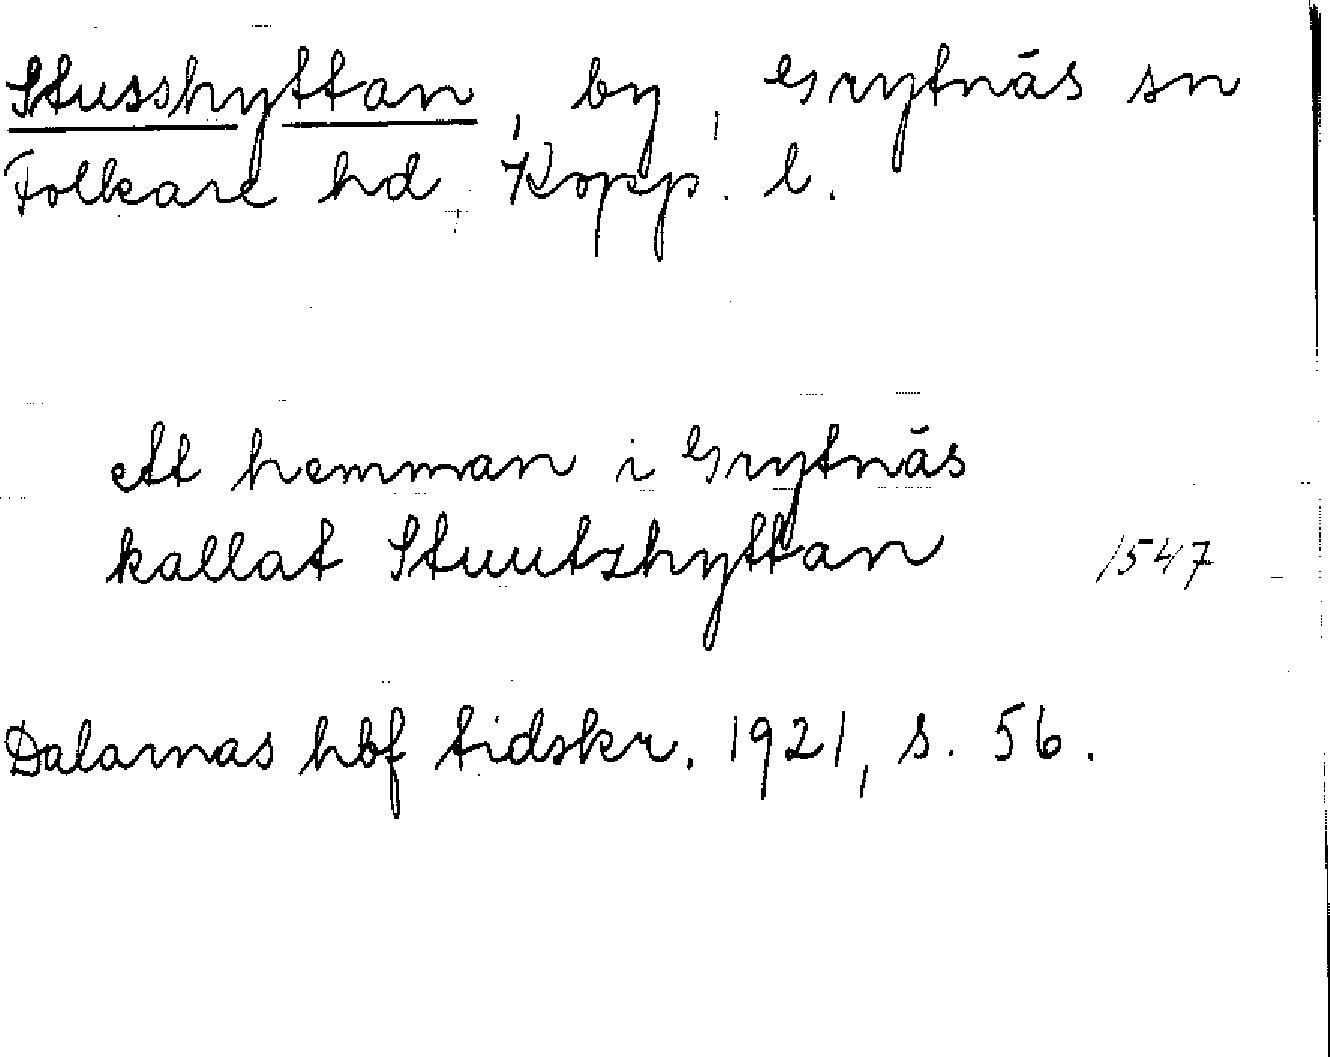 Stusshyttan, by, Grytnäs sn
Folkare hd Kopp. l.
ett hemman i Grytnäs
kallat Stuutzhyttan 1547
Dalarnas hbf tidskr. 1921, s. 56.